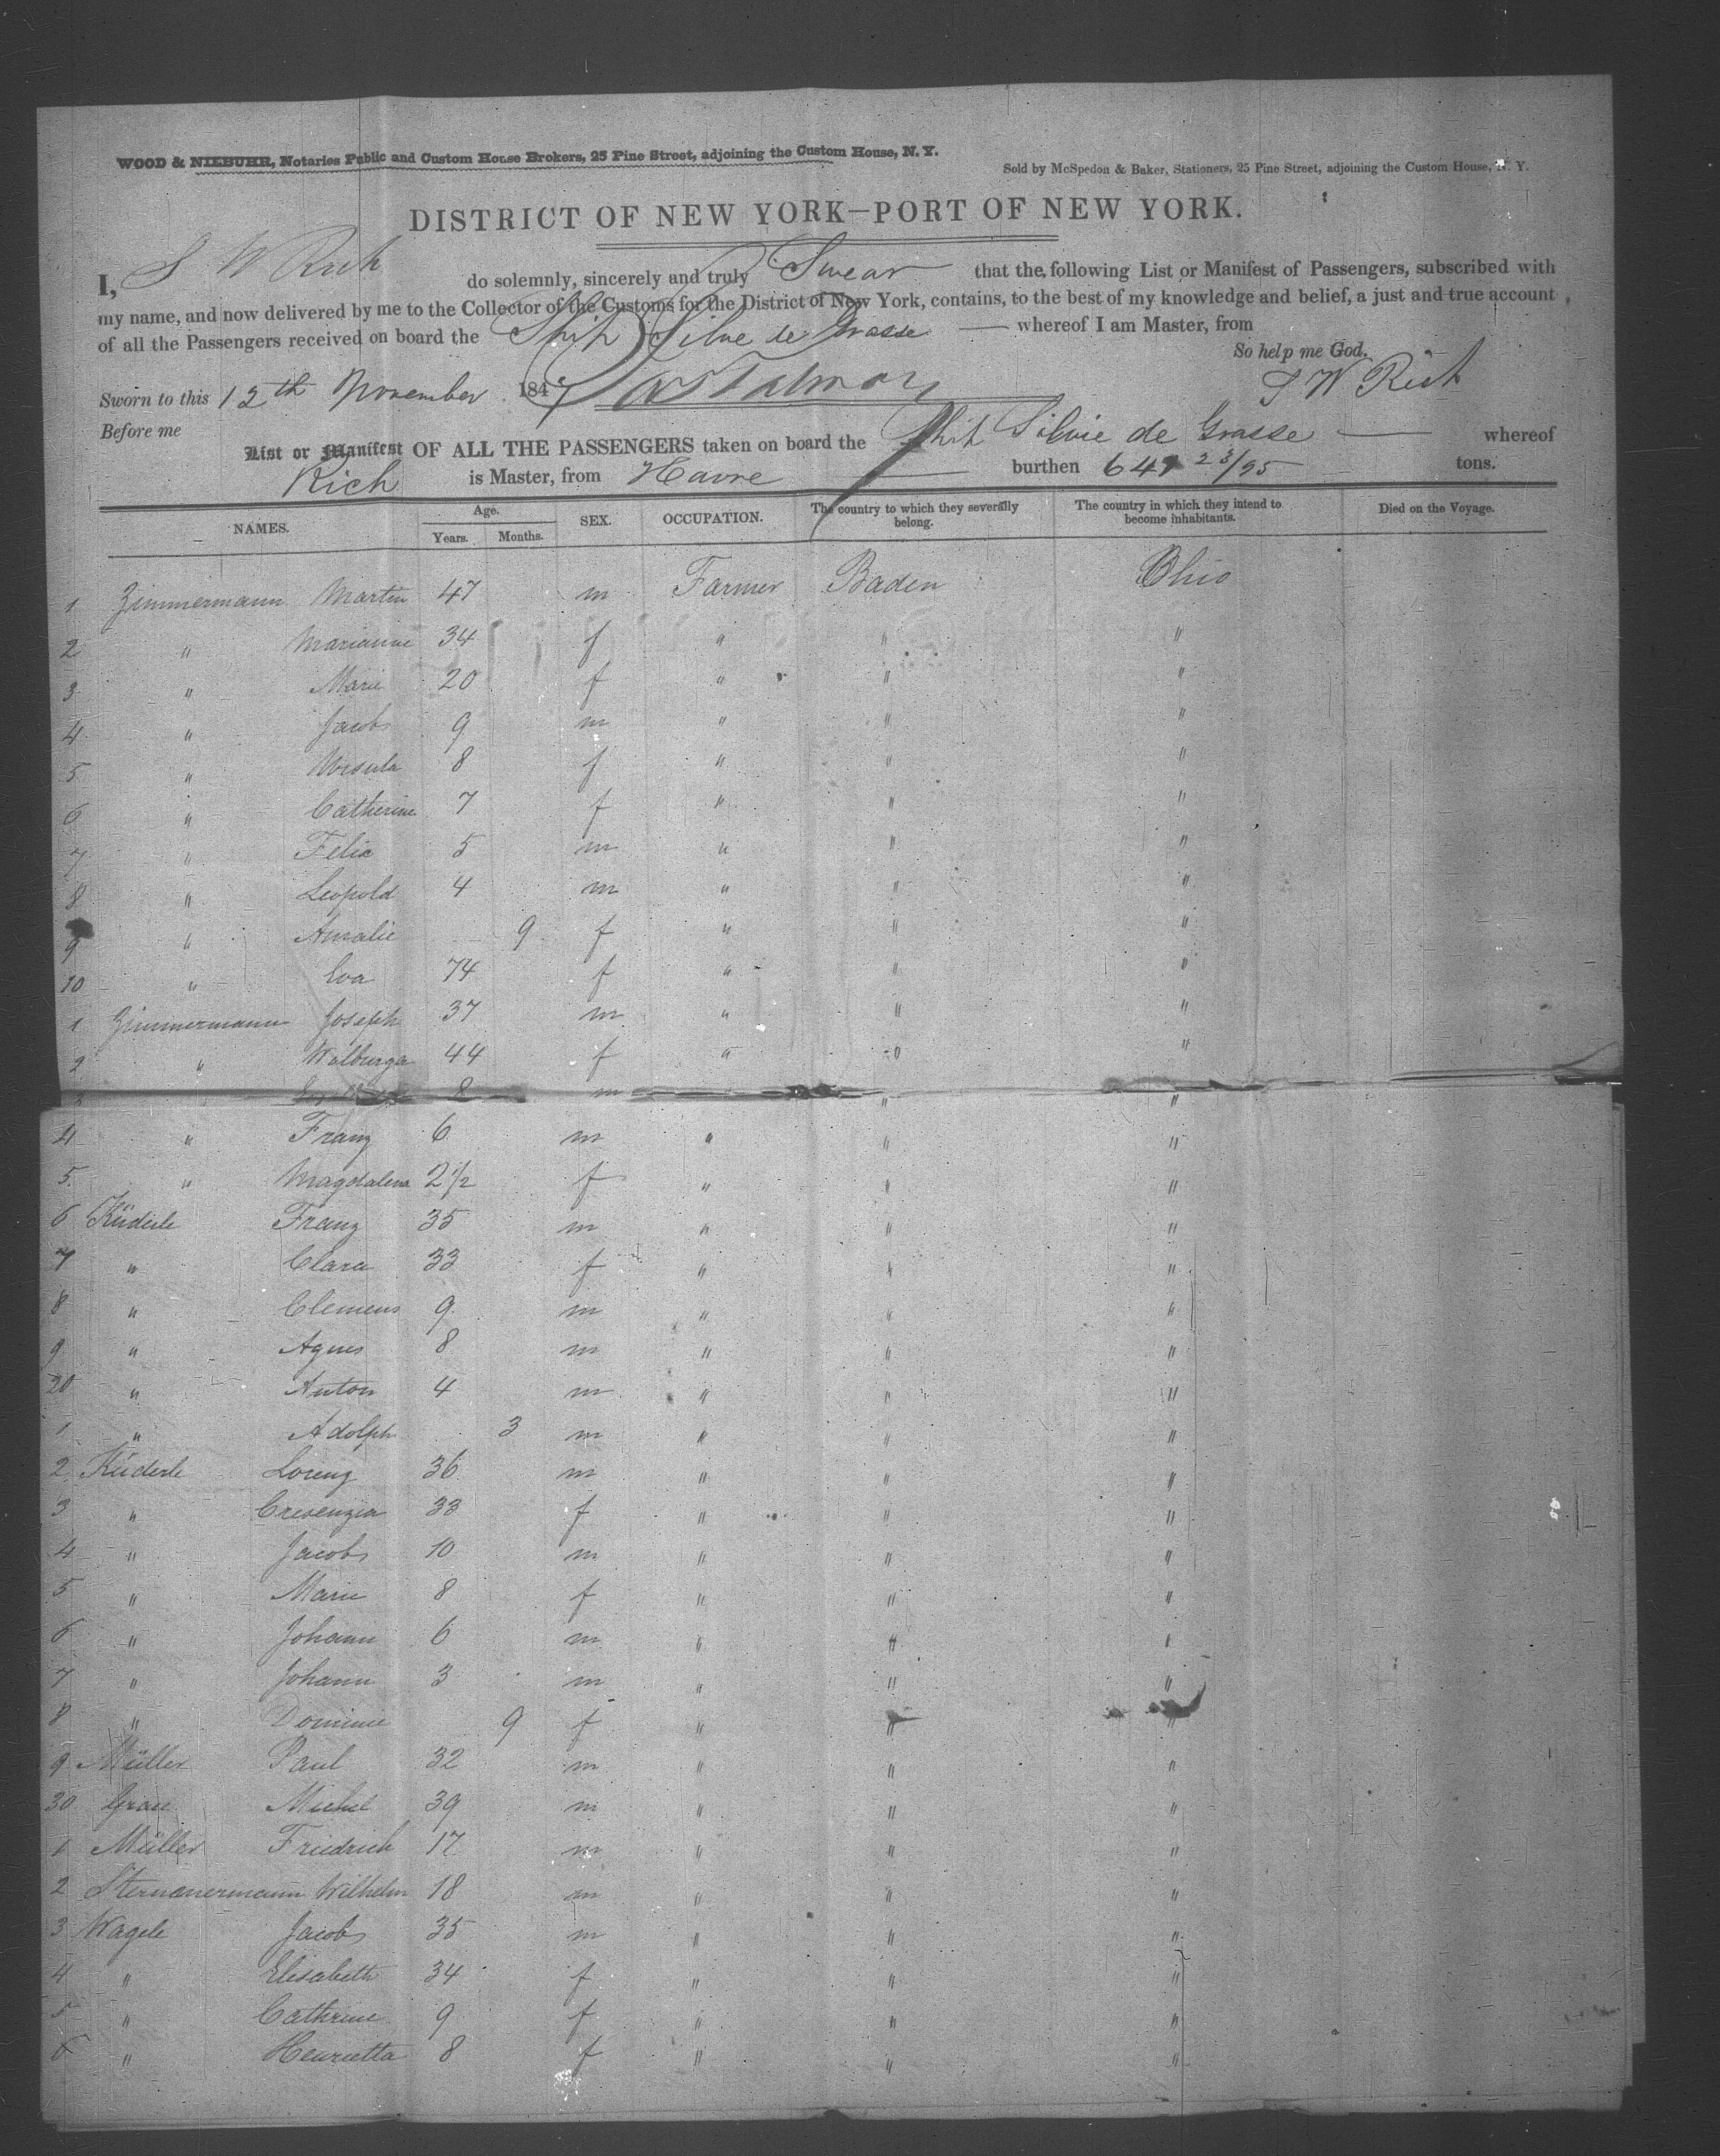 WOOD & NIEBUHR, Notaries Public and Custom House Brokers, 25 Pine Street, adjoining the Custom House, N. Y.
Sold by McSpedon & Baker, Stationers, 25 Pine Street, adjoining the Custom House, N. Y.
DISTRICT OF NEW YORK—PORT OF NEW YORK.
I, S W Rich do solemnly, sincerely and truly Swear that the following List or Manifest of Passengers, subscribed with
my name, and now delivered by me to the Collector of the Customs for the District of New York, contains, to the best of my knowledge and belief, a just and true account
of all the Passengers received on board the Ship Silvie de Grasse whereof I am Master, from
So help me God.
Sworn to this 12th November 1847 S W Rich
Before me
List or Manifest OF ALL THE PASSENGERS taken on board the Ship Silvie de Grasse whereof
Rich is Master, from Havre burthen 641 23/95 tons.
NAMES. Age. Years. Months. SEX. OCCUPATION. The country to which they severally belong. The country in which they intend to become inhabitants. Died on the Voyage.
1 Zimmermann Martin 47 m Farmer Baden Ohio
2 " Marianne 34 f " " "
3 " Marie 20 f " " "
4 " Jacob 9 m " " "
5 " Ursula 8 f " " "
6 " Catherine 7 f " " "
7 " Felix 5 m " " "
8 " Leopold 4 m " " "
9 " Amalie 9 f " " "
10 " Eva 74 f " " "
1 Zimmermann Joseph 37 m " " "
2 " Walburga 44 f " " "
3 8 m " "
4 " Franz 6 m " " "
5 " Magdalena 2 1/2 f " " "
6 Küderle Franz 35 m " " "
7 " Clara 33 f " " "
8 " Clemens 9 m " " "
9 " Agnes 8 m " " "
20 " Anton 4 m " " "
1 " Adolph 3 m " " "
2 Küderle Lorenz 36 m " " "
3 " Cresenzia 33 f " " "
4 " Jacob 10 m " " "
5 " Marie 8 f " " "
6 " Johann 6 m " " "
7 " Johann 3 m " " "
8 " 9 f " " "
9 Müller Paul 32 m " " "
30 Grau Michel 39 m " " "
1 Müller Friedrich 17 m " " "
2 Wilhelm 18 m " " "
3 Wagele Jacob 35 m " " "
4 " Elisabeth 34 f " " "
5 " Cathrine 9 f " " "
6 " Henrietta 8 f " " "